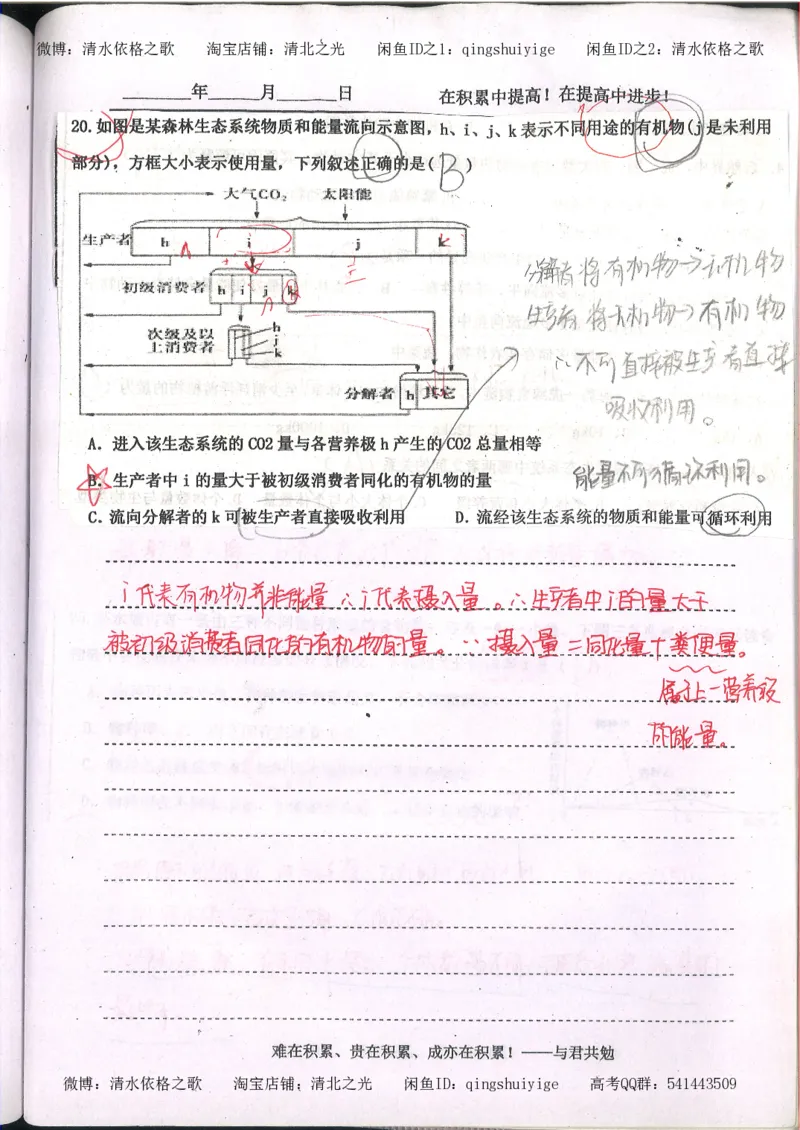 微博：清水依格之歌 淘宝店铺：清北之光 闲鱼ID之1：qingshuiyige 闲鱼ID之2：清水依格之歌
年 月 日 在积累中提高！在提高中进步！
20.如图是某森林生态系统物质和能量流向示意图，h、i、j、k表示不同用途的有机物(j是未利用
部分)，方框大小表示使用量，下列叙述正确的是( B )
大气CO₂ 太阳能
生产者 h i j k
初级消费者 h i j k
次级及以上消费者 h j k
分解者 h 其它
分解者将有机物→无机物
生产者将无机物→有机物
∴不可直接被生产者直接
吸收利用。
A．进入该生态系统的CO2量与各营养极h产生的CO2总量相等
B．生产者中i的量大于被初级消费者同化的有机物的量
能量不可循环利用。
C．流向分解者的k可被生产者直接吸收利用 D．流经该生态系统的物质和能量可循环利用
i代表有机物并非能量∴i代表摄入量。∴生产者中i的量大于
被初级消费者同化的有机物的量。∵摄入量=同化量+粪便量。
属于上一营养级
的能量。
难在积累、贵在积累、成亦在积累！——与君共勉
微博：清水依格之歌 淘宝店铺：清北之光 闲鱼ID：qingshuiyige 高考QQ群：541443509